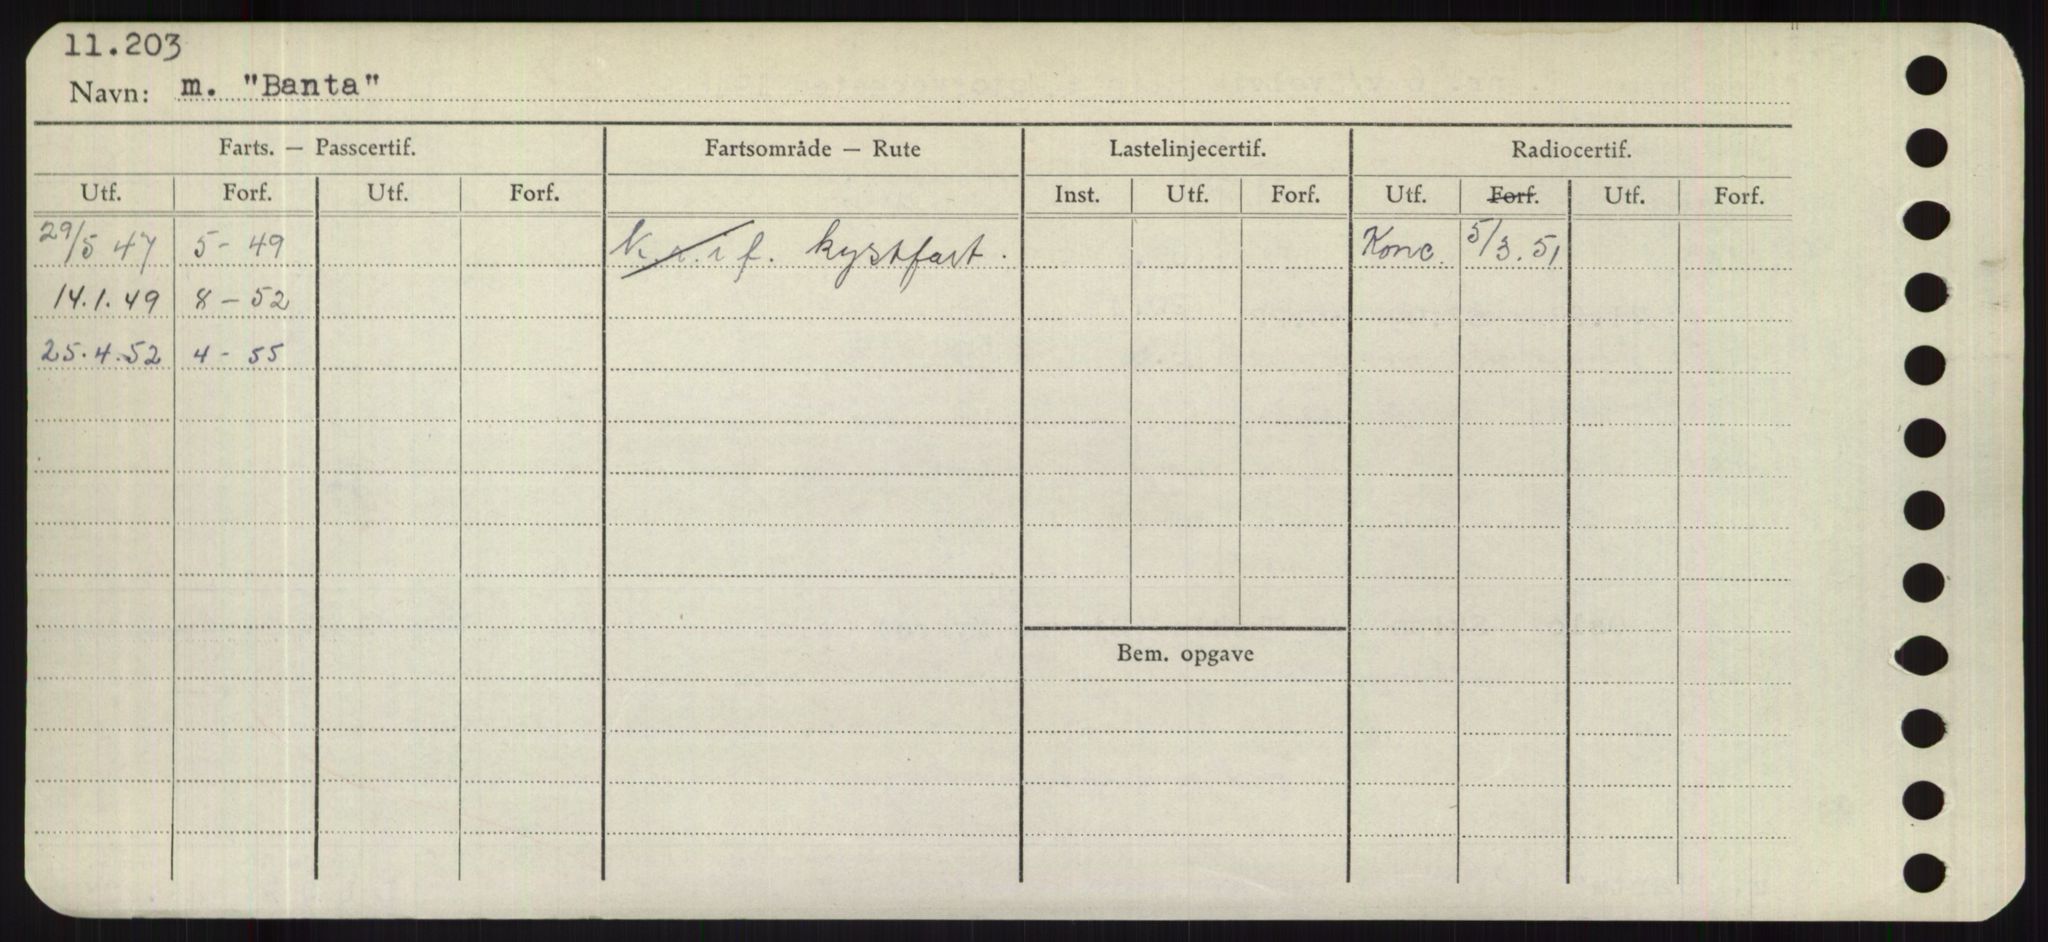 11.203
Navn: m. "Banta"
Farts. — Passcertif. Fartsområde — Rute Lastelinjecertif. Radiocertif.
Utf. Forf. Utf. Forf. Inst. Utf. Forf. Utf. Forf. Utf. Forf.
29/5 47 5 - 49 K.i.i f. kystfart. Konc. 5/3.51
14.1.49 8 - 52
25.4.52 4 - 55
Bem. opgave